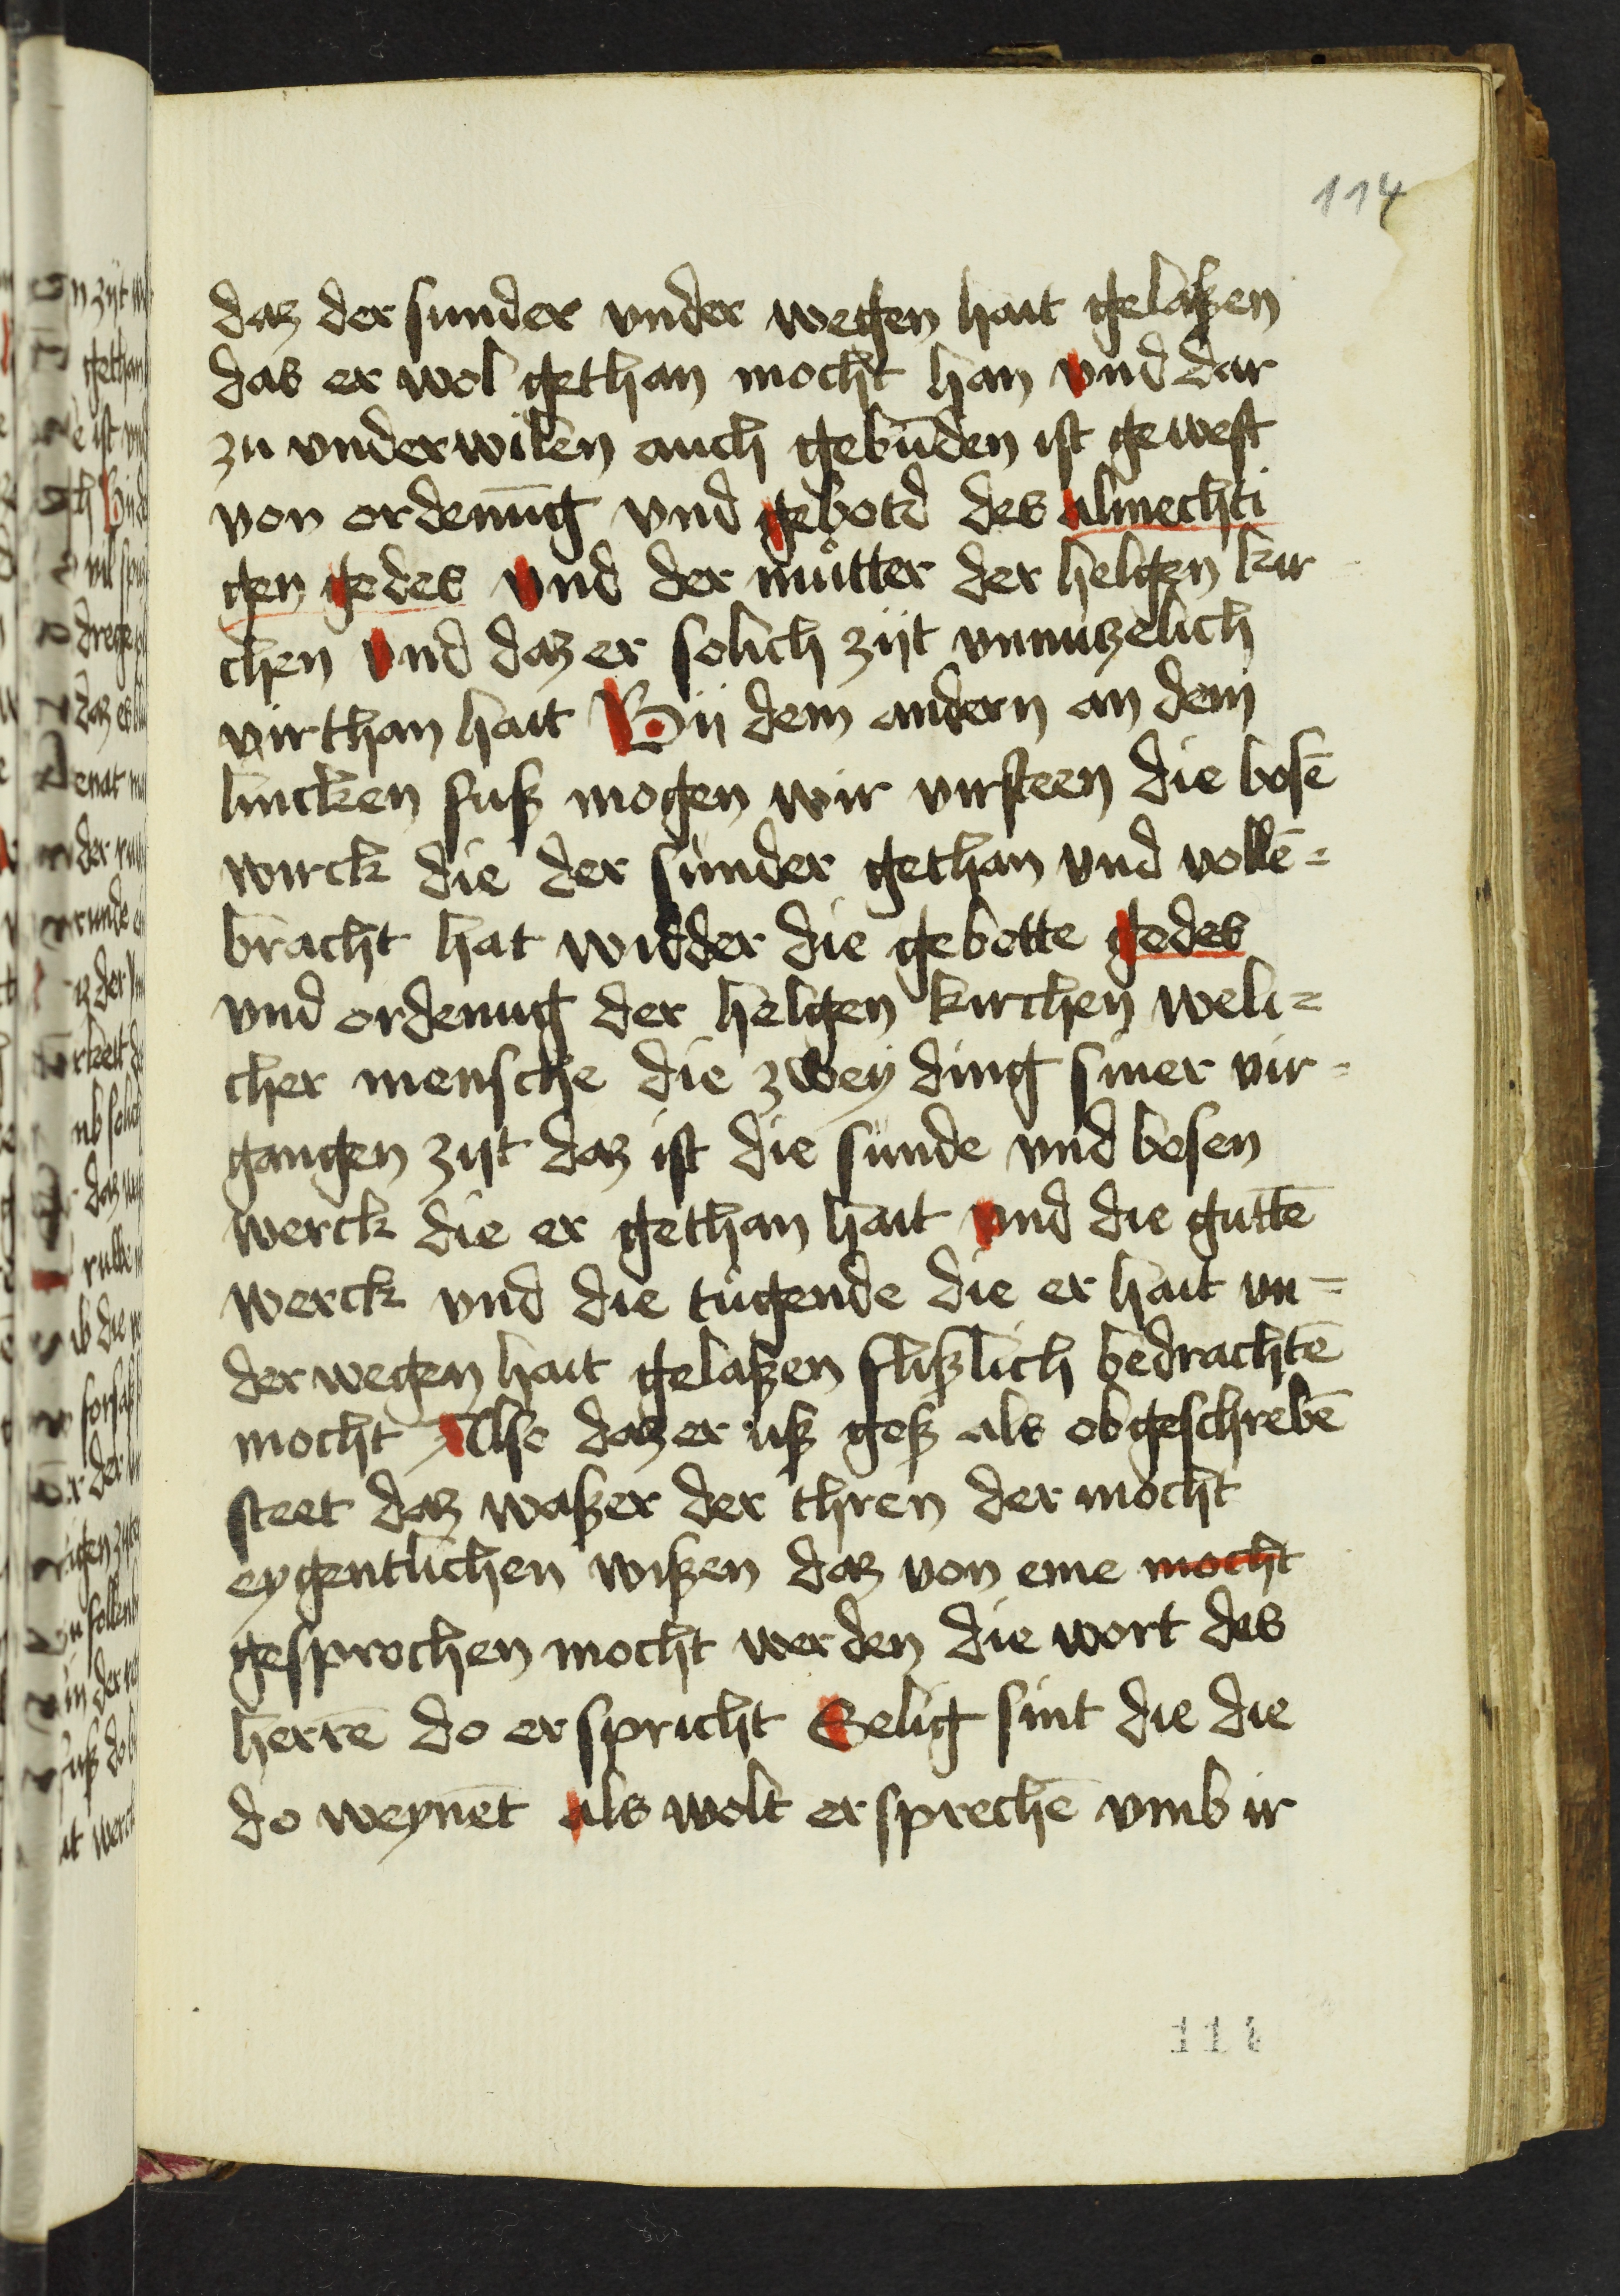 114
daz der sunder vnder wegen hait gelaßen
das er wol gethan mocht han vnd dar
zu vnderwilen auch gebunden ist gewest
von ordenu̅g vnd gebotd des almechti
gen godes vnd der můtter der helgen kir
chen vnd daz er solich zijt vnnutzelich
virthan hait Bij dem andern an dem
lincken fuß mogen wir virsteen die bose̅
wirck die der sunder gethan vnd volle̅=
bracht hat widder die gebotte godes
vnd ordenug der helgen kirchen weli=
cher mensche die zwey ding siner vir=
gangen zijt daz ist die sunde vnd bosen
werck die er gethan hait vnd die gutte̅
werck vnd die tugende die er hait vn=
der wegen hait gelaßen flißlich bedrachte̅
mocht Also daz er uß goß als obgeschrebe̅
steet daz waßer der thren der mocht
eygentlichen wißen daz von eme mocht
gesprochen mocht werden die wort des
herre̅ do er spricht Selig sint die die
do weyne̅t als wolt er spreche̅ vmb ir